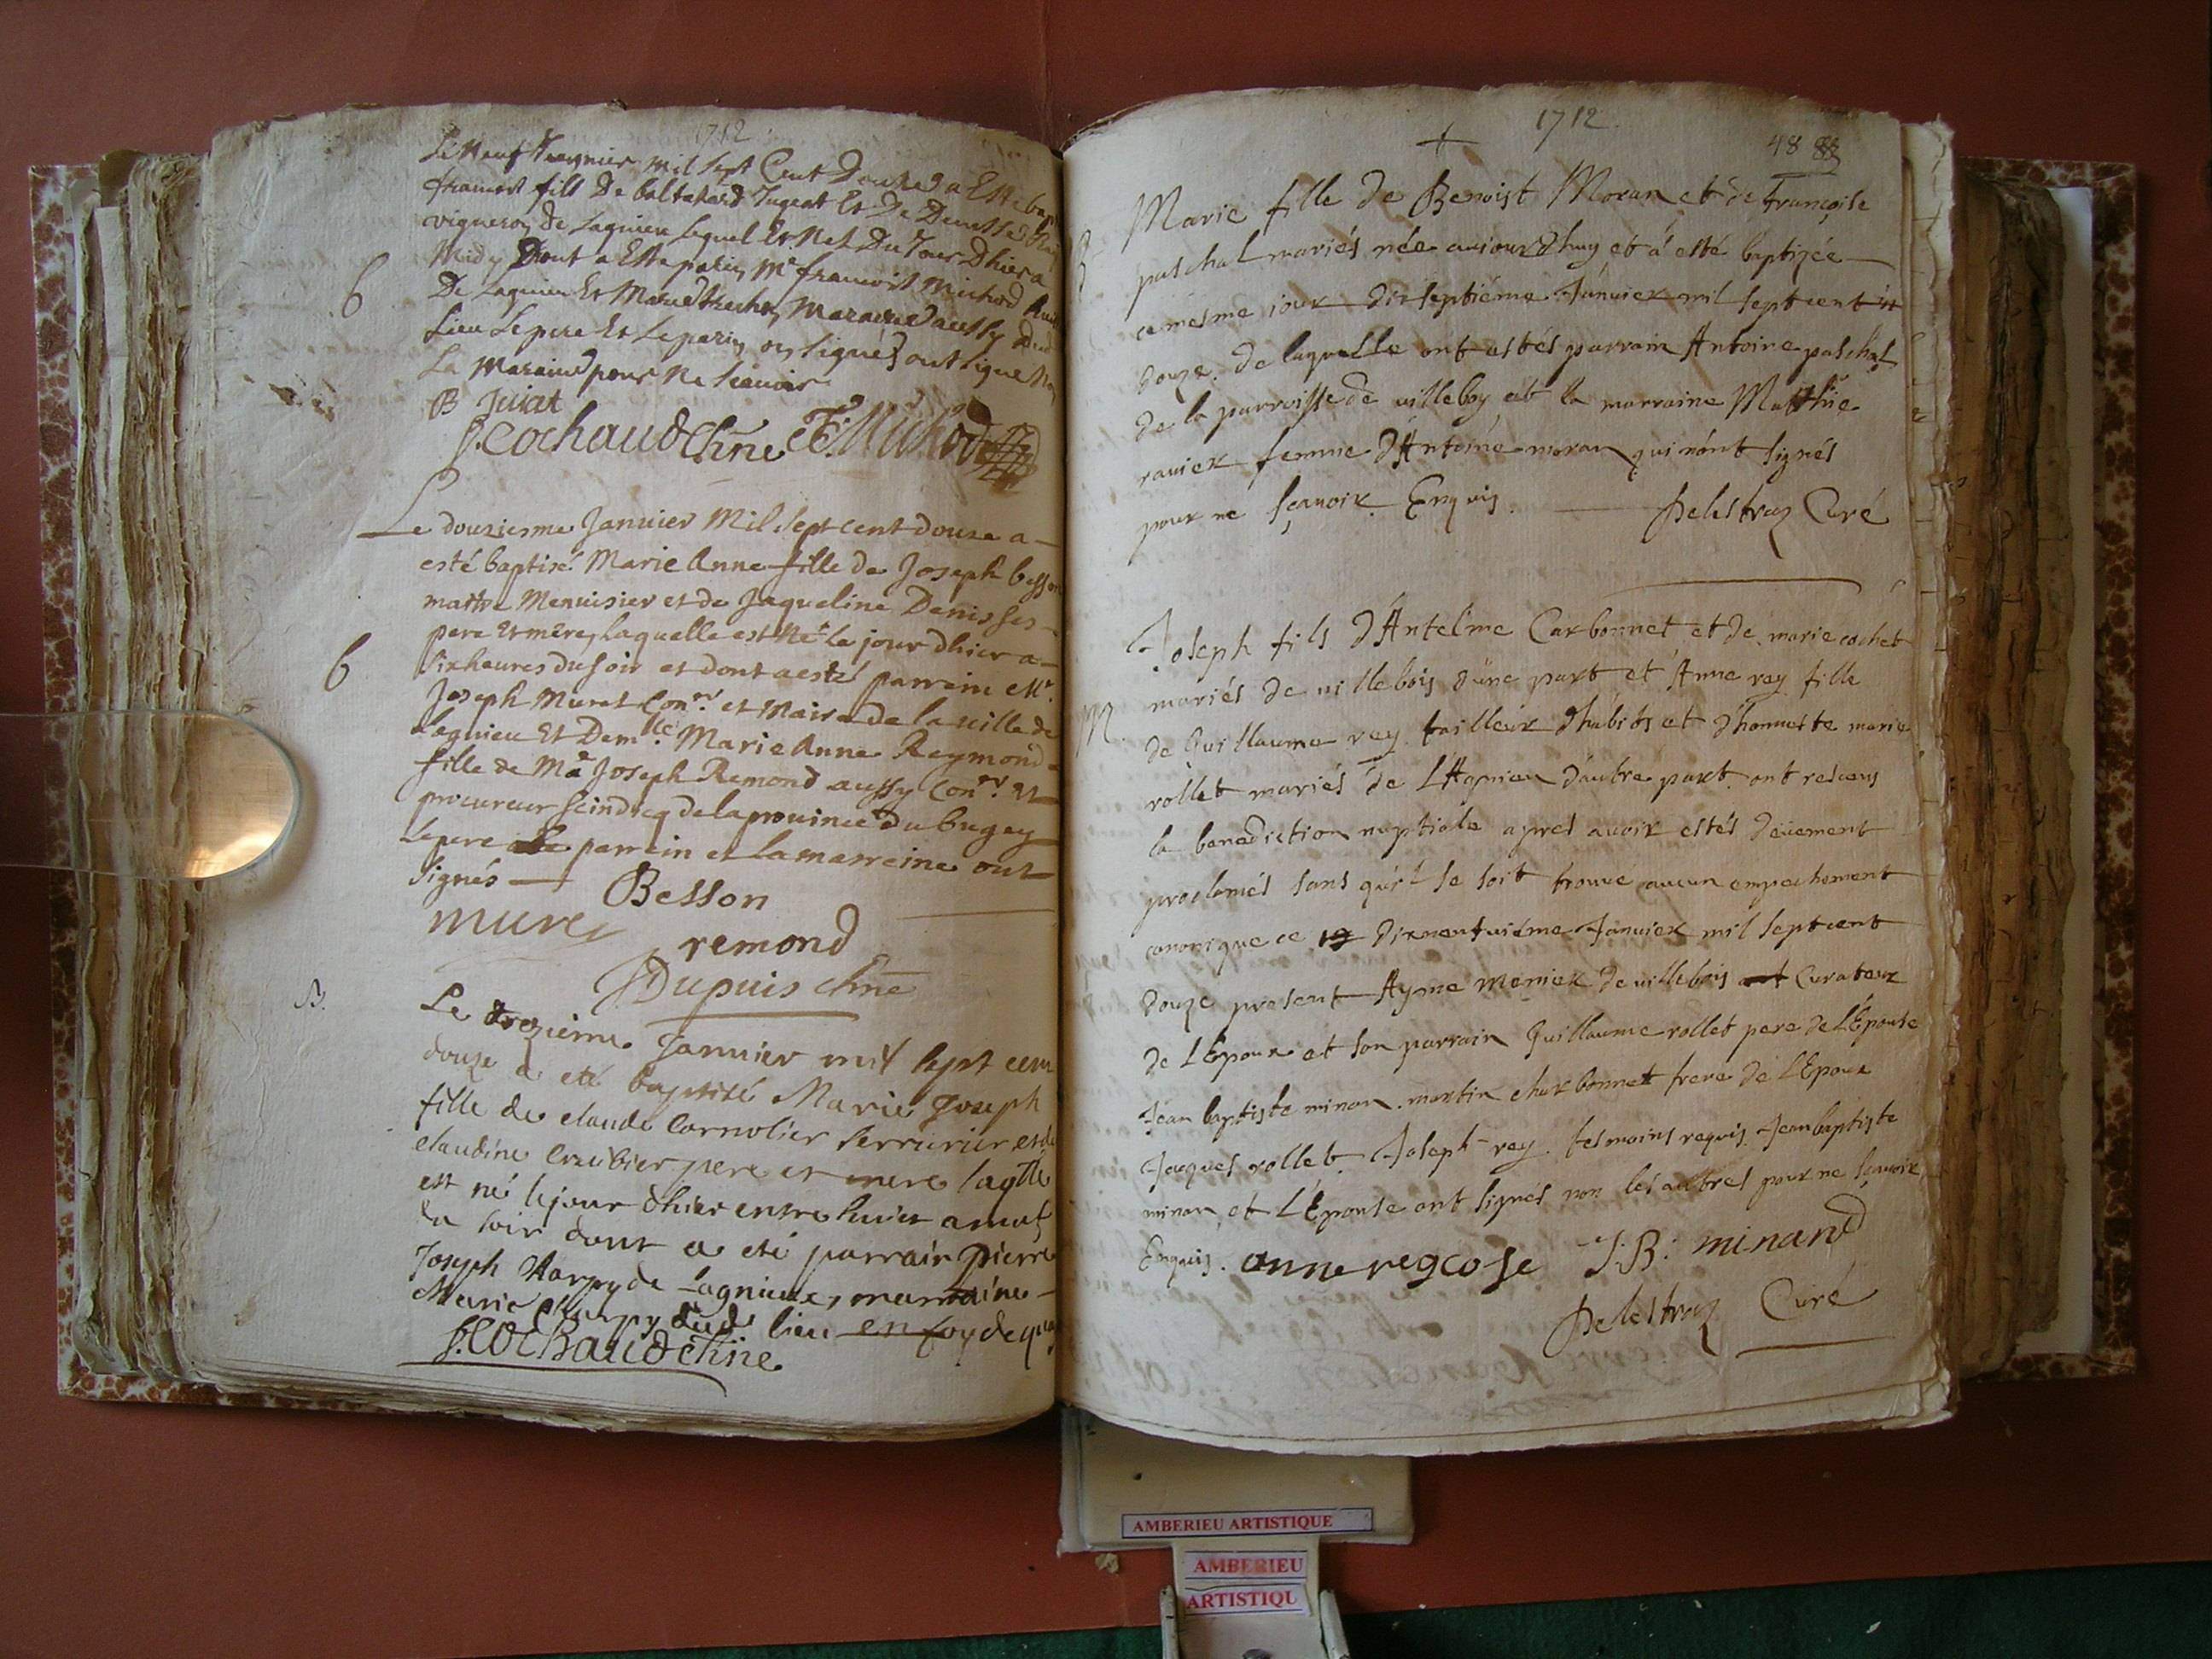 1712
Le neuf Jeanvier mil sept Cent Douze a Esté bap
francois fils De baltazard Jugeat Et De Denisse
vigneron de Lagnieu lequel Est Net Du Jour Dhier a
Midy Dont a Esté parin Mr francois Michod
De Lagnieu Et Marie maraine aussy dud
Lieu Le pere Et Le parin ont signé non
La Maraine pour ne scavoir
B Juiat
J. Cochaud Chne F. Michod
B
Le douziesme Januier Mil sept cent douze a
esté baptisé Marie Anne fille de Joseph besson
maitre Menuisier et de Jaqueline Denis ses
pere et mere, laquelle est Né le jour dhier a
six heures du soir et dont a esté parrein Mr.
Joseph Muret Conr. et Maire de la ville de
Lagnieu Et Demlle Marie Anne Reymond
fille de Me Joseph Remond aussy Conr. et
procureur scindicq de la province Du bugey
Le pere le parrein et la marreine ont
signés
Besson
muret
remond
Dupuis chne
B
B.
Le trezieme Januier mil sept cent
douze a eté baptisé Marie Joseph
fille de claude Cornolier serrurier et de
claudine pere et mere laqlle
est né le jour dhier entre huict a neuf
du soir dont a eté parrain pierre
Joseph Harpy de Lagnieu, marraine
Marie Charpy dud lieu en foy de quoy
J. Cochaud chne
1712.
48
B
Marie fille de Benoist Moran et de Françoise
paschal mariés née aujourdhuy et a esté baptizée
ce mesme jour dixseptiéme Januier mil sept cent
douze. de laquelle ont estés parrain Antoine paschal
de la parroisse de villeboy et la marraine Matthie
ravier femme d'Antoine moran qui n'ont signés
pour ne sçauoir Enquis.
Delestraz Curé
M.
Joseph fils d'Antelme Carbonnet et de marie cochet
mariés de villebois d'une part et Anne rey fille
de Guillaume rey tailleur d'habits et d'honneste marie
rollet mariés de Lagnieu d'autre part. ont receus
la benediction nuptiale apres auoir estés deüement
proclamés sans qu'il se soit trouue aucun empechement
canonique ce 19 dixneufuiéme Januier mil sept cent
douze present Ayme menier de villebois et Curateur
de L'Epoux et son parrain Guillaume rollet pere de L'Epouse
Jean baptiste minan. martin charbonnet frere de L'Epoux
Jacques rollet. Joseph rey. tesmoins requis. Jean baptiste
minan et L'Epouse ont signés non les aultres pour ne sçauoir
Enquis. anne regcose J:B: minand
Delestraz Curé
AMBERIEU ARTISTIQUE
AMBERIEU
ARTISTIQU